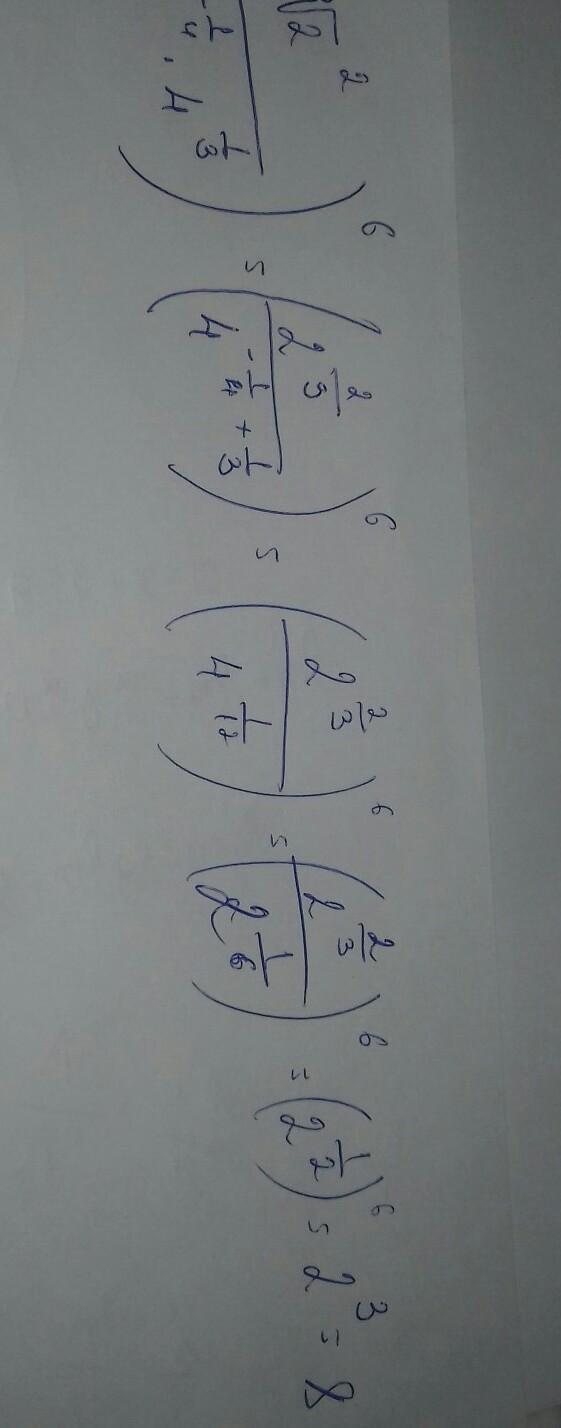 (∛2² / 4^(-1/4) · 4^(1/3))^6 = (2^(2/3) / 4^(-1/4 + 1/3))^6 = (2^(2/3) / 4^(1/12))^6 = (2^(2/3) / 2^(1/6))^6 = (2^(1/2))^6 = 2^3 = 8